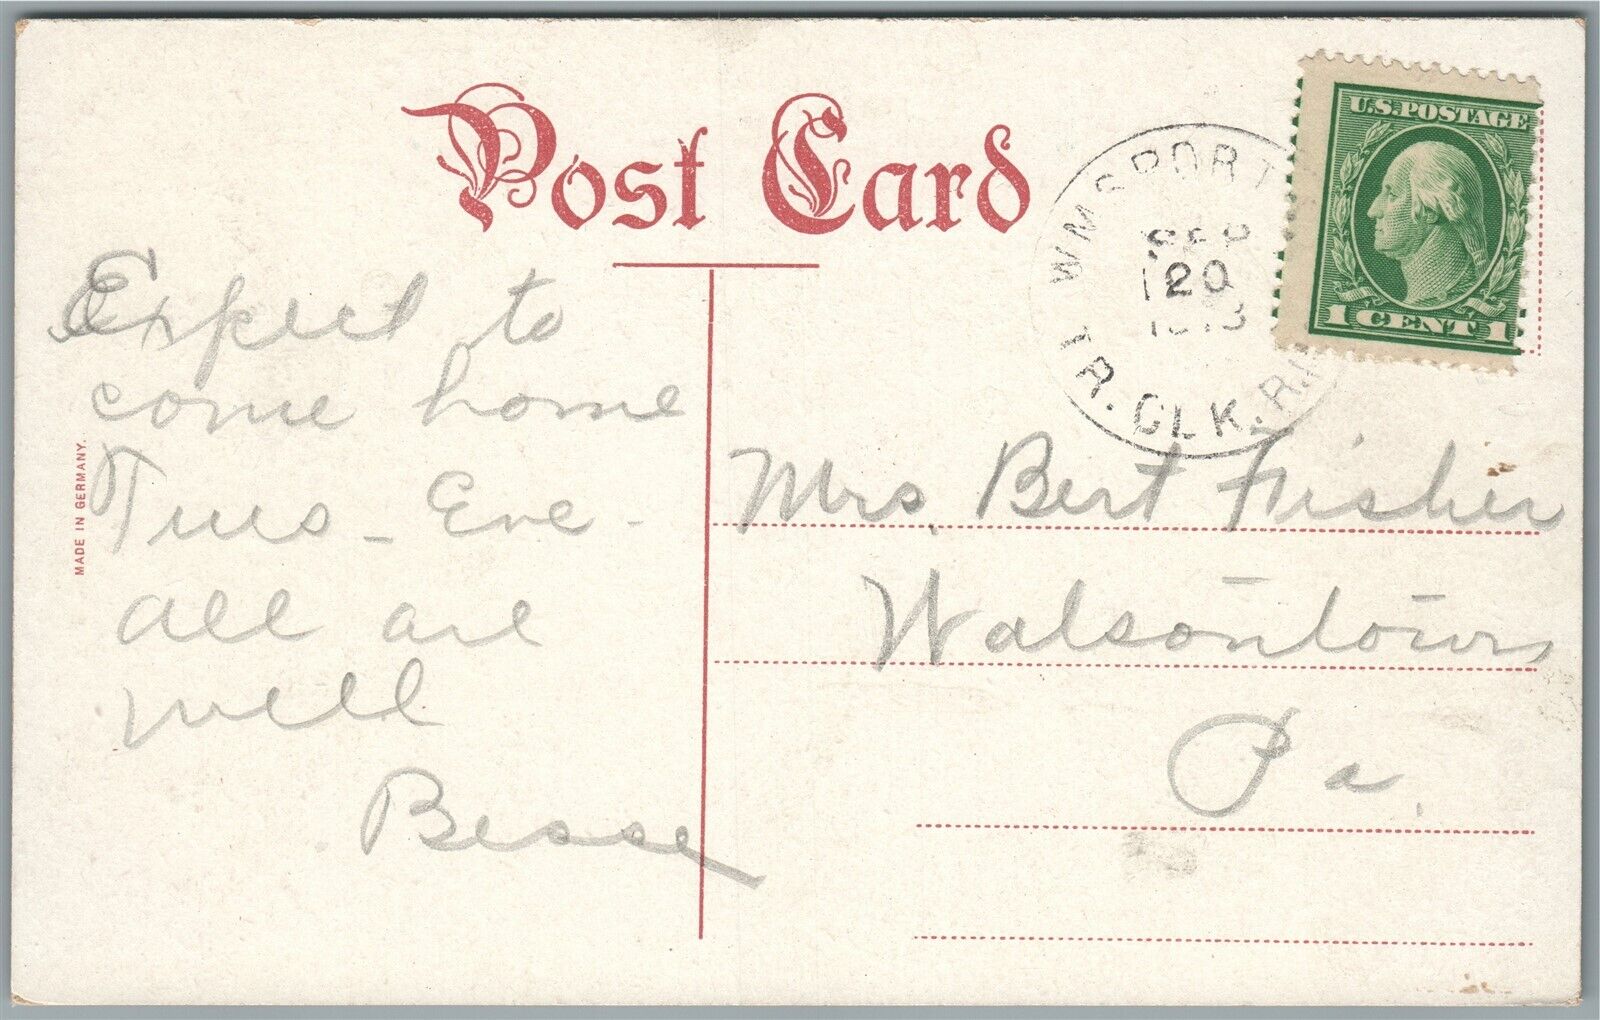 Post Card
U.S. POSTAGE
1 CENT 1
WMSPORT
SEP
20
TR. CLK. R.
MADE IN GERMANY.
Expect to
come home
Tues - Eve -
all are
well
Besse
Mrs. Bert Fisher
Watsontown
Pa.